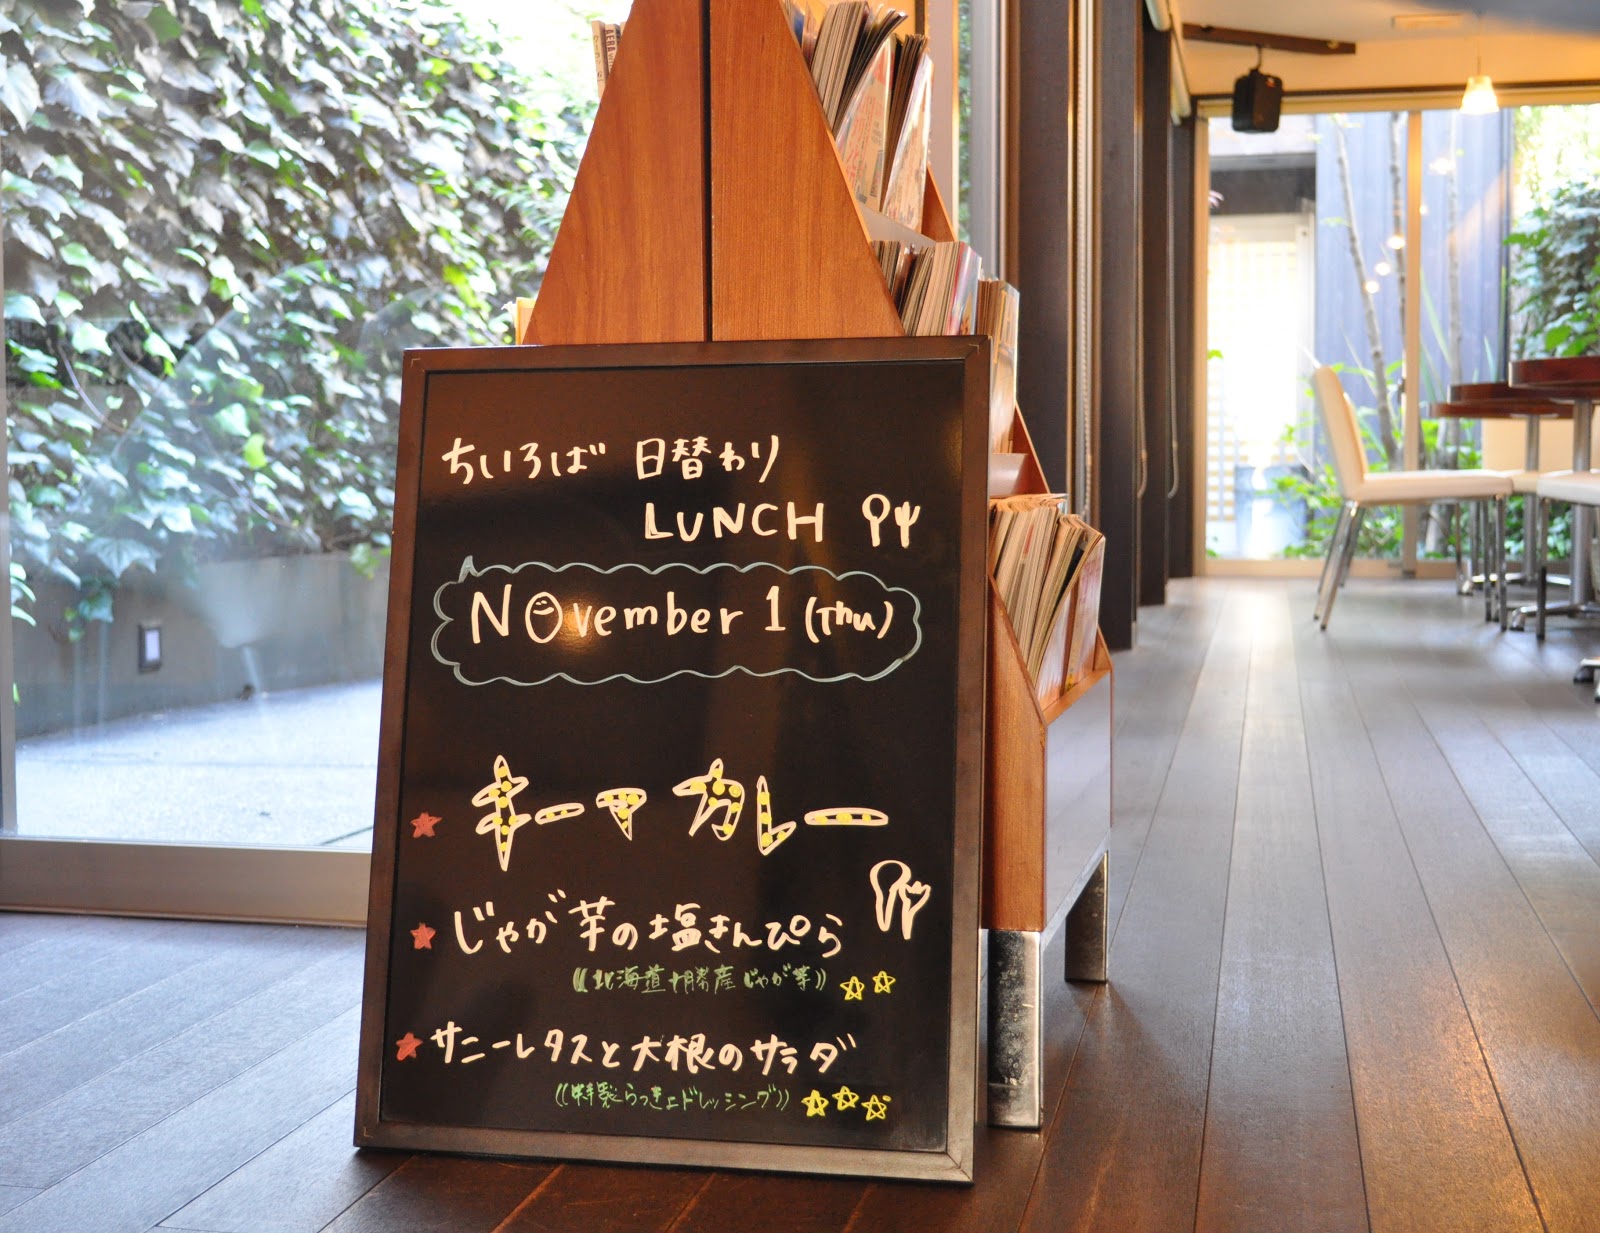 AERA
ちいろば 日替わり
LUNCH
November 1 (Thu)
キーマ カレー
じゃが芋の塩きんぴら
((北海道十勝産じゃが芋))
サニーレタスと大根のサラダ
((特製らっきょドレッシング))